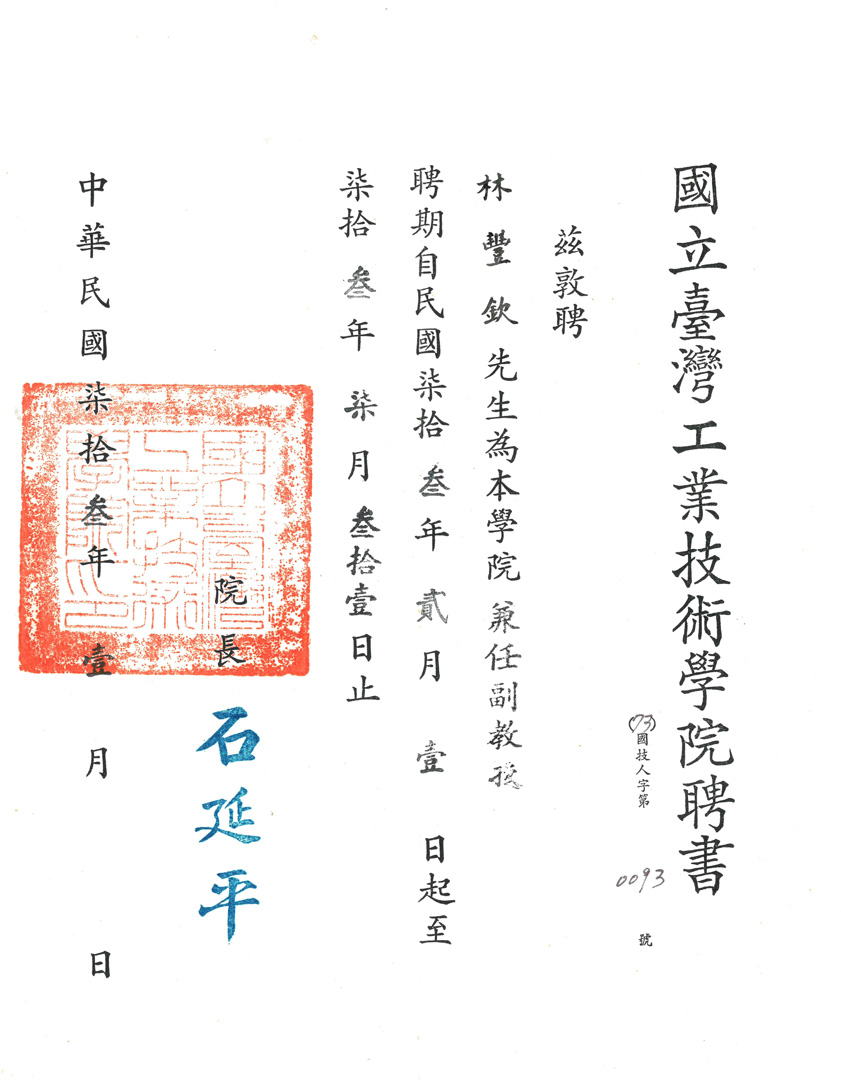 國立臺灣工業技術學院聘書
(73)國技人字第 0093 號
茲敦聘
林豐欽先生為本學院兼任副教授
聘期自民國柒拾叁年貳月壹日起至
柒拾叁年柒月叁拾壹日止
院長 石延平
國立臺灣
工業技術
學院之印
中華民國柒拾叁年壹月 日